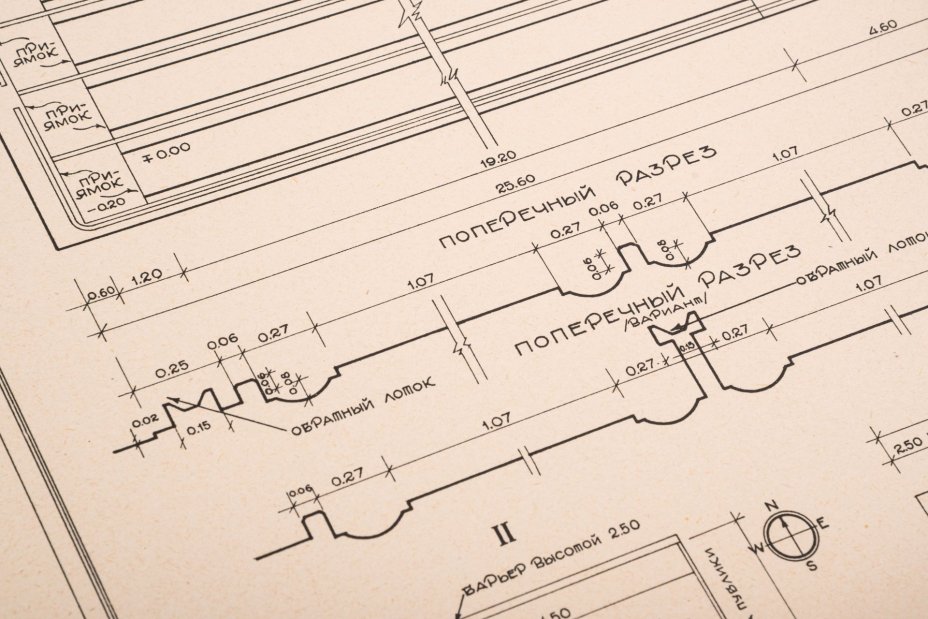 ПРИ-
ЯМОК
ПРИ-
ЯМОК
∓0.00
ПРИ-
ЯМОК
-0.20
4.60
19.20
25.60
1.20
0.60
ПОПЕРЕЧНЫЙ РАЗРЕЗ
0.27
1.07
0.27
0.06
0.27
1.07
0.06
0.08
ПОПЕРЕЧНЫЙ РАЗРЕЗ
/ВАРИАНТ/
ОБРАТНЫЙ ЛОТОК
0.25
0.06
0.27
0.06
0.08
0.02
0.15
ОБРАТНЫЙ ЛОТОК
1.07
0.27
0.15
0.27
1.07
0.06
0.27
II
2.50
БАРЬЕР ВЫСОТОЙ 2.50
N
E
W
S